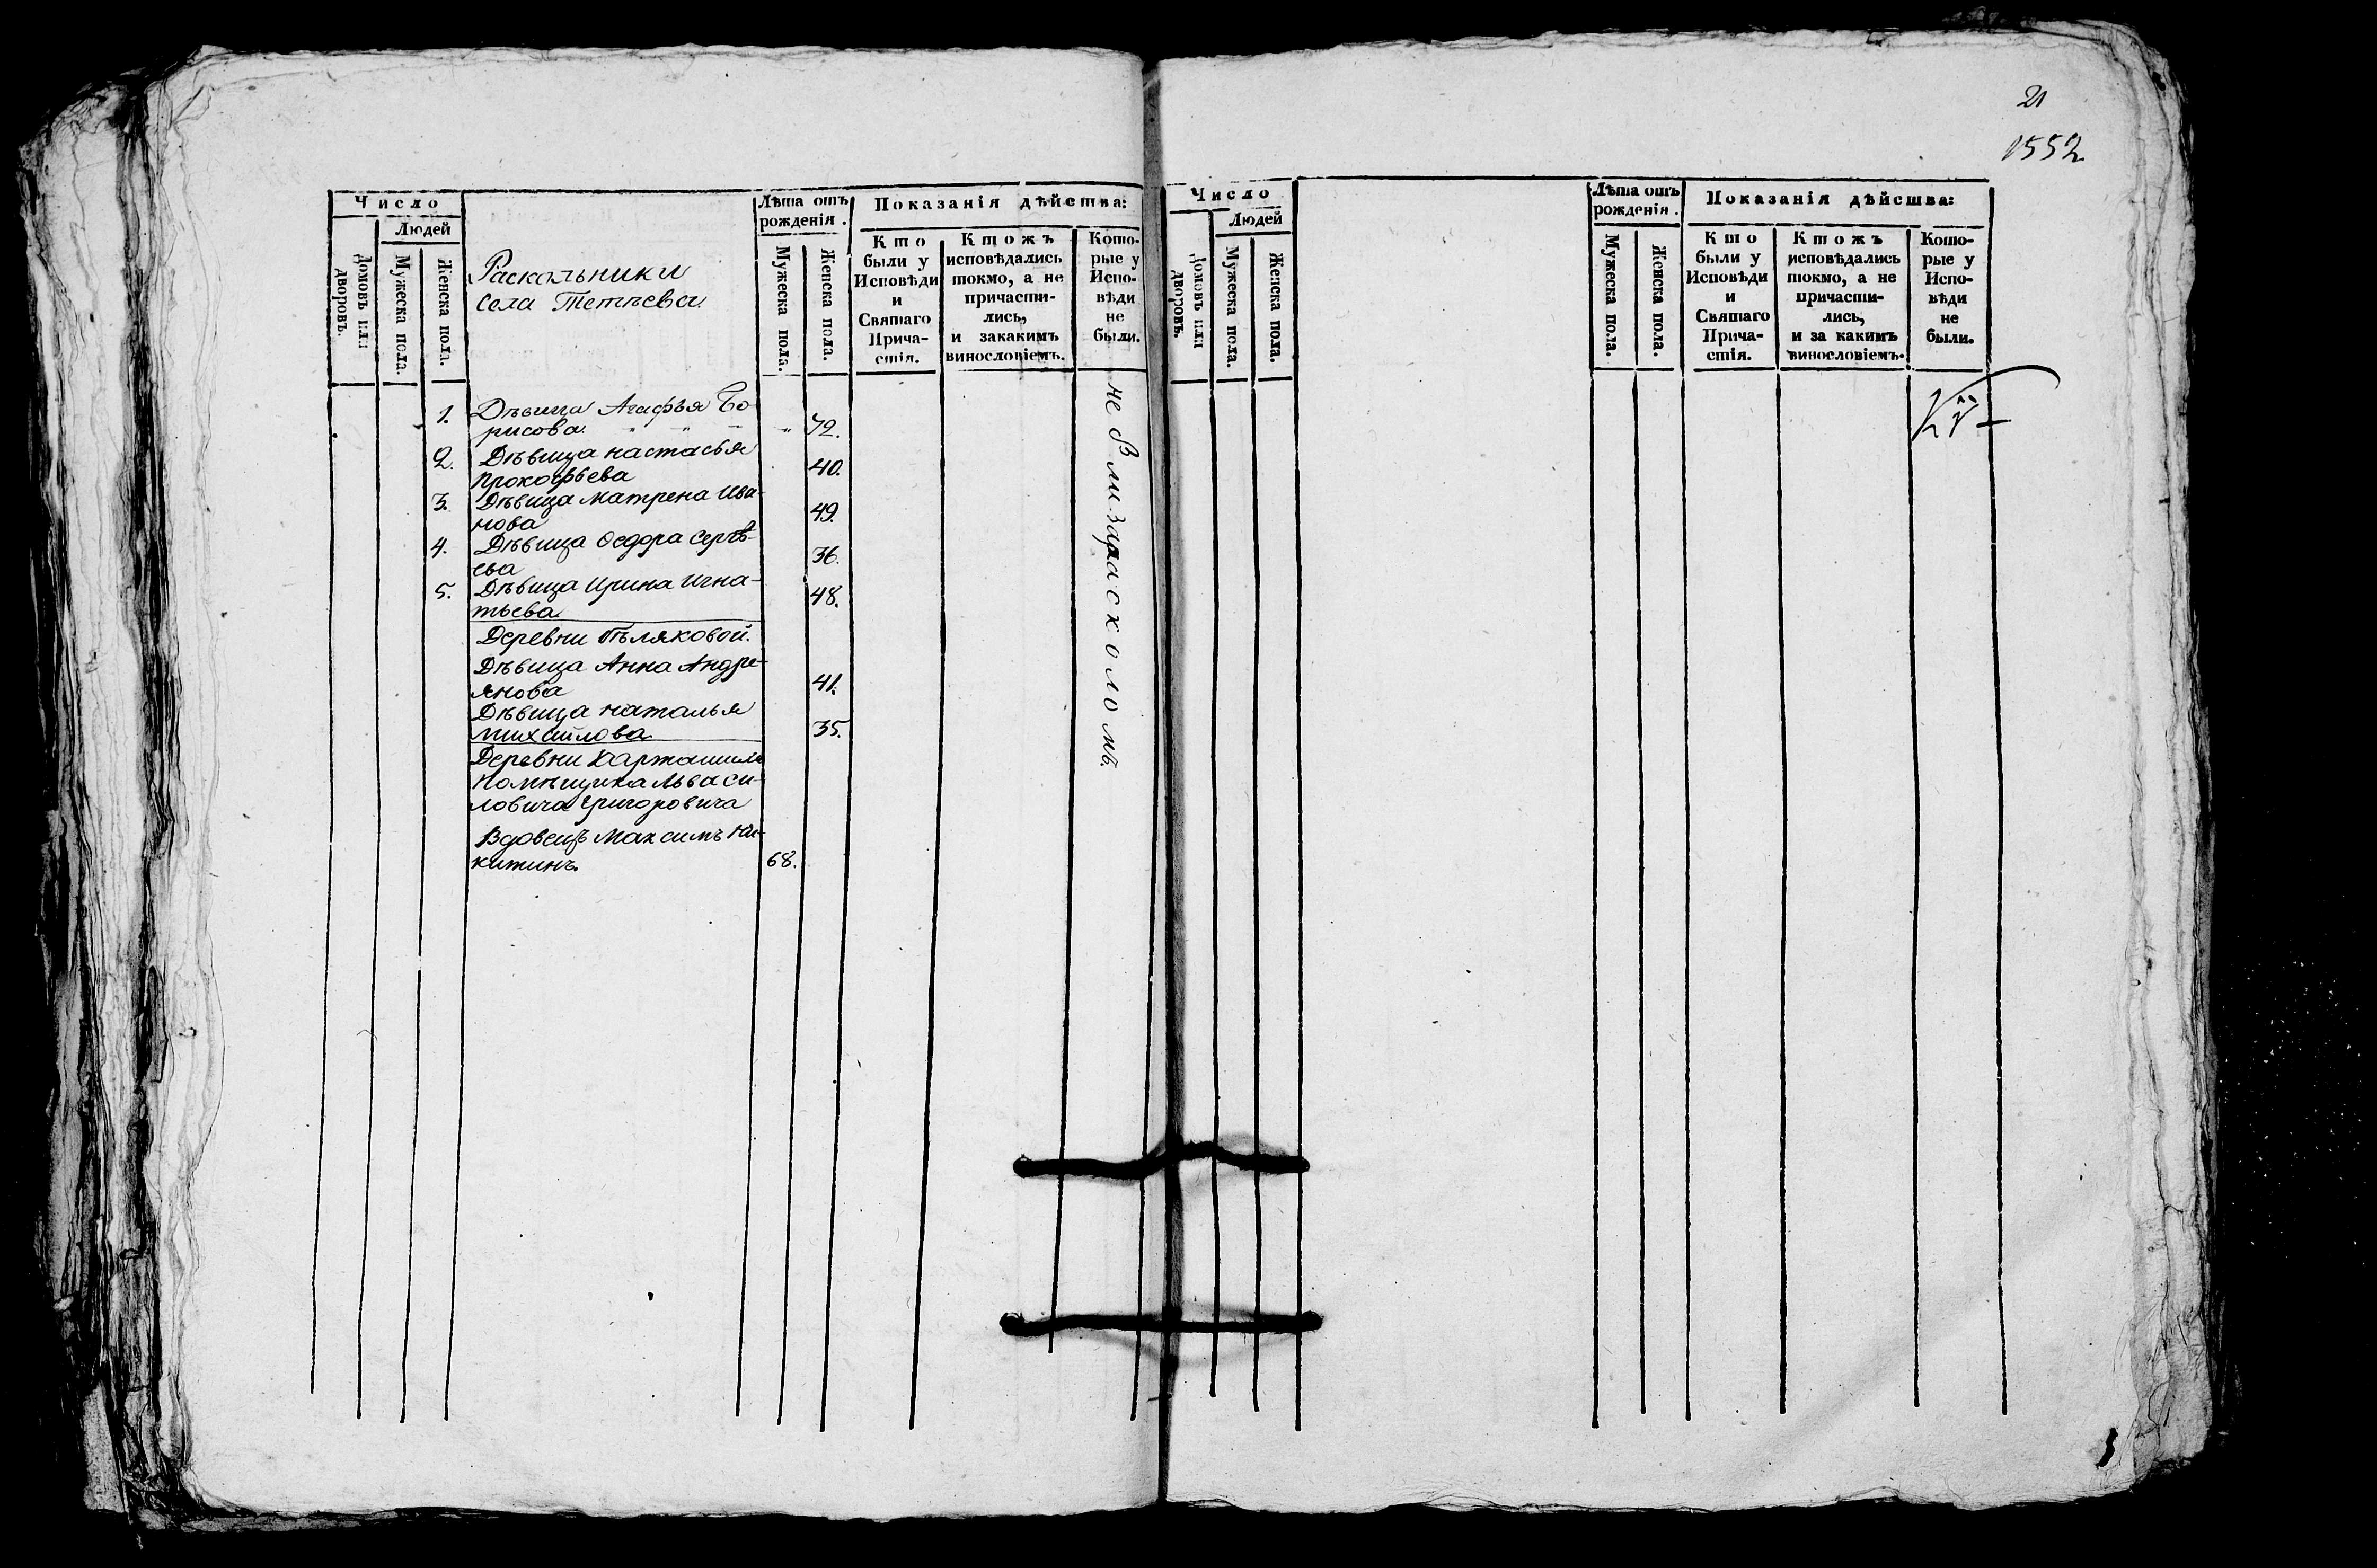 Число
Людей
Домовъ или дворовъ.
Мужеска пола.
Женска пола.
Раскольники
села Тетѣева
Лѣта отъ рожденія.
Мужеска пола.
Женска пола.
Показанія дѣйства:
Кто были у Исповѣди и Святаго Причастія.
Ктожъ исповѣдались токмо, а не причастились, и закакимъ винословіемъ.
Которые у Исповѣди не были.
1. Дѣвица Агафья Бо-
рисова 72.
2. Дѣвица настасья
прокофьева 40.
3. Дѣвица матрена Ива-
нова 49.
4. Дѣвица Ѳедора Сергѣ-
ева 36.
5. Дѣвица Ирина Игна-
тьева 48.
Деревни Бѣляковой.
Дѣвица Анна Андре-
янова 41.
Дѣвица наталья
михайлова 35.
Деревни
помѣщика Льва Си-
ловича Григоровича
Вдовецъ Максимъ Ни-
китинъ. 68.
не были за расколомъ.
21
1552
Число
Людей
Домовъ или дворовъ.
Мужеска пола.
Женска пола.
Лѣта отъ рожденія.
Мужеска пола.
Женска пола.
Показанія дѣйства:
Кто были у Исповѣди и Святаго Причастія.
Ктожъ исповѣдались токмо, а не причастились, и за какимъ винословіемъ.
Которые у Исповѣди не были.